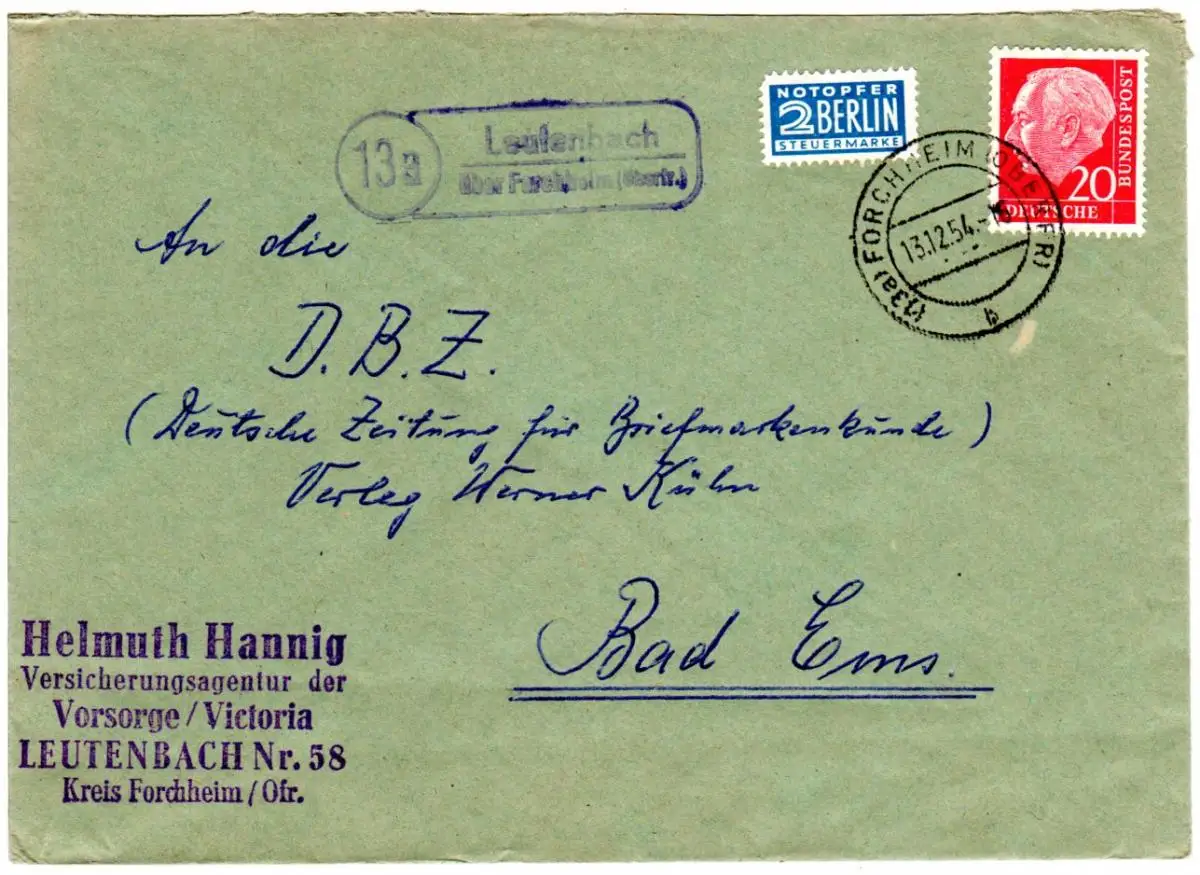 NOTOPFER
2 BERLIN
STEUERMARKE
20
DEUTSCHE
BUNDESPOST
13a
Leutenbach
über Forchheim (Oberfr.)
(13a) FORCHHEIM (OBERFR)
13.12.54.-
b
An die
D. B. Z.
(Deutsche Zeitung für Briefmarkenkunde)
Verlag Werner Kühn
Bad Ems.
Helmuth Hannig
Versicherungsagentur der
Vorsorge/Victoria
LEUTENBACH Nr. 58
Kreis Forchheim/Ofr.